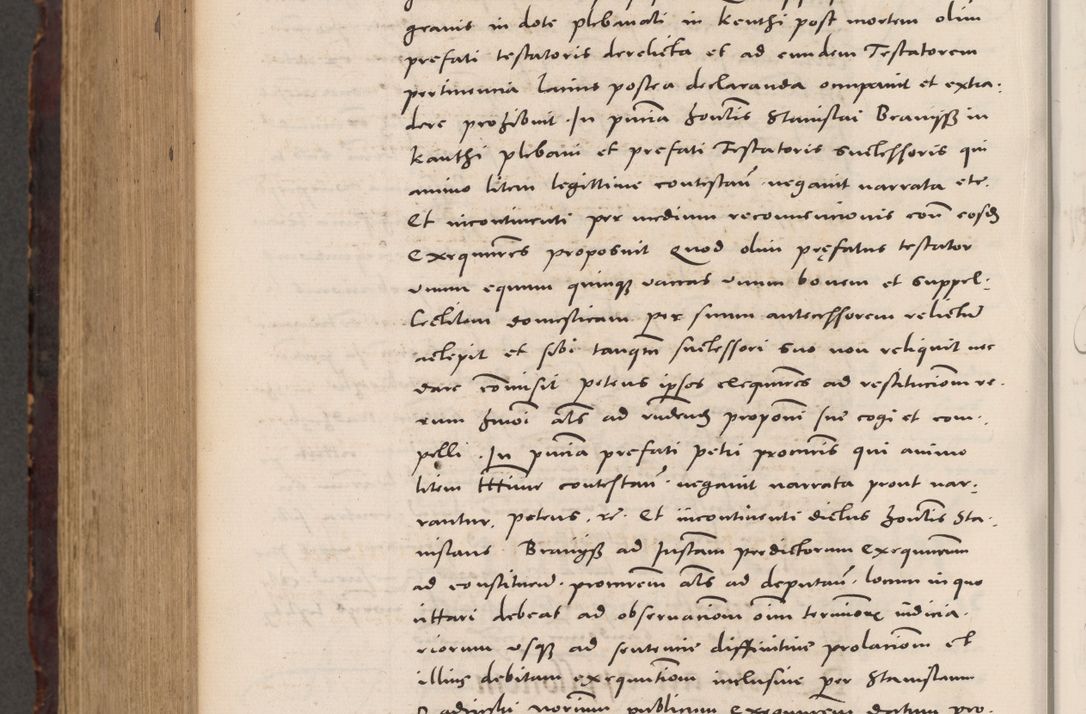 gravis in dote plebanali in Kenthi post mortem olim
prefati testatoris derelicta et ad eundem Testatorem
pertinencia lacius postea declaranda occupavit et extra-
dere prohibuit. In pncia honlis Stanislai Branyss in
Kanthi plebani et prefati Testatoris successoris qui
animo litem legittime contestan. negavit narrata etc.
Et incontinenti per medium reconvencionis con eosdem
Exequutores proposuit Quod olim pręfatus testator
unum equum quinqz vaccas unum bovem et suppel-
lectilem domesticam per suum antecessorem relictam
accepit et sibi tanqm successori suo non reliquit nec
dare commisit petens ipsos exequutores ad restitucionem re-
rum hmoi als ad videndum proponi sive cogi et com-
pelli. In pncia prefati Petri procuris qui animo
litem ltttime contestan. negavit narrata prout nar-
rantur. petens. re. Et incontinenti dictus honlis Sta-
nislaus Branyss ad Instam predictorum Exequutorum
ad constituend. procurem als ad deputan. locum in quo
cittari debeat ad observacionem oim terminorum iudicia-
riorum usqz ad sentencie diffinitive prolacionem et
illius debitam exequutionem inclusive per Stanislaum
notarium publicum Exequutorem